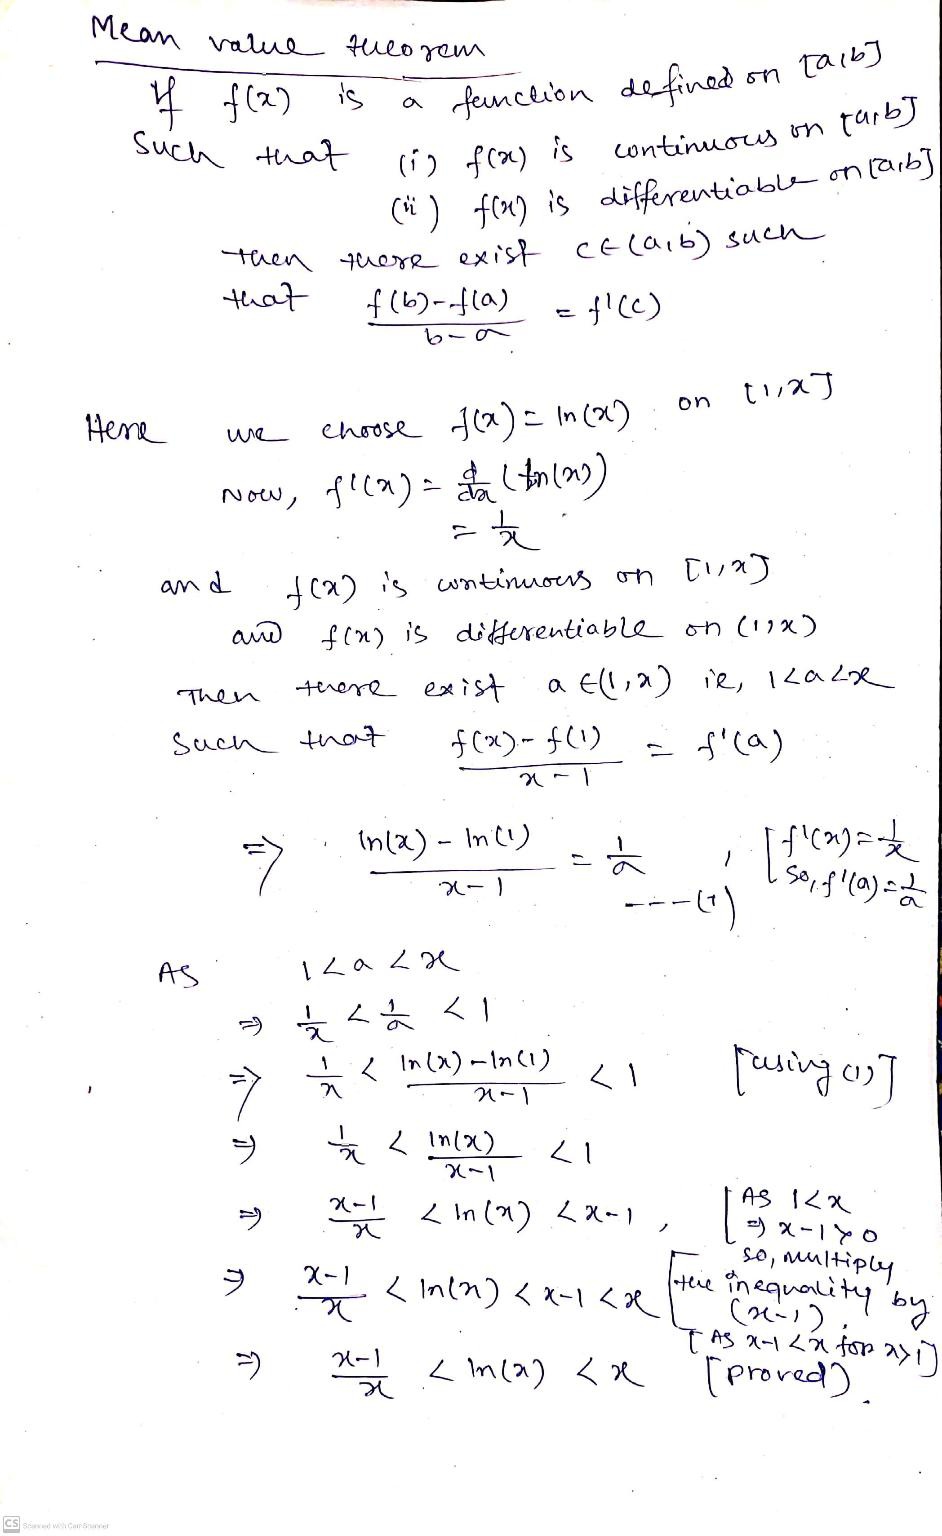 Mean value theorem
If f(x) is a function defined on [a,b]
Such that (i) f(x) is continuous on [a,b]
(ii) f(x) is differentiable on [a,b]
then there exist c∈(a,b) such
that f(b)-f(a)/b-a = f'(c)
Here we choose f(x) = ln(x) on [1,x]
Now, f'(x) = d/dx (ln(x))
= 1/x
and f(x) is continuous on [1,x]
and f(x) is differentiable on (1,x)
Then there exist a ∈(1,x) ie, 1<a<x
Such that f(x)-f(1)/x-1 = f'(a)
⇒ ln(x)-ln(1)/x-1 = 1/a , [f'(x)=1/x
So, f'(a)=1/a
---(1)
As 1<a<x
⇒ 1/x < 1/a < 1
⇒ 1/x < ln(x)-ln(1)/x-1 < 1 [using (1)]
⇒ 1/x < ln(x)/x-1 < 1
⇒ x-1/x < ln(x) < x-1 , [As 1<x
⇒ x-1>0
so, multiply
the inequality by
(x-1)
⇒ x-1/x < ln(x) < x-1 < x
[As x-1<x for x>1]
⇒ x-1/x < ln(x) < x [proved).
CS Scanned with CamScanner